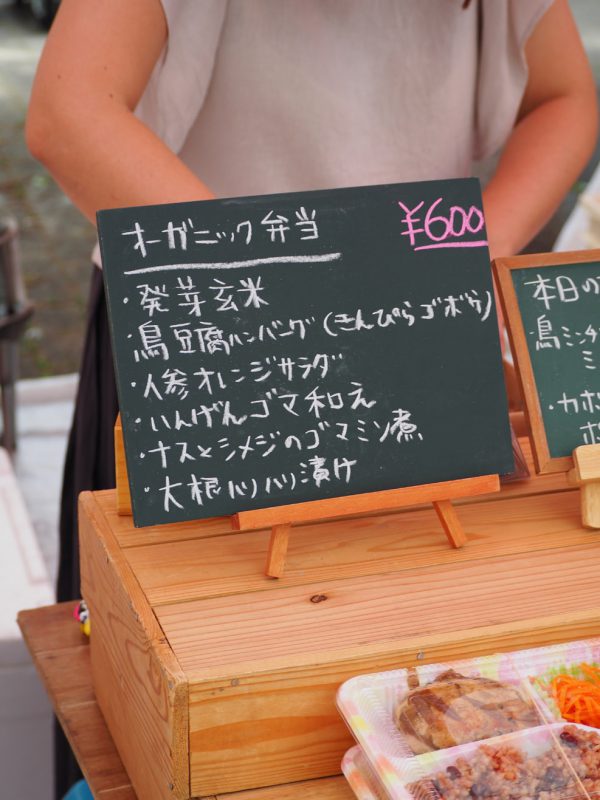 オーガニック弁当
¥600
・発芽玄米
・鳥豆腐ハンバーグ(きんぴらゴボウ)
・人参オレンジサラダ
・いんげんゴマ和え
・ナスとシメジのゴマミソ煮
・大根ハリハリ漬け
本日の
鳥ミンチ
ミ
・カボ